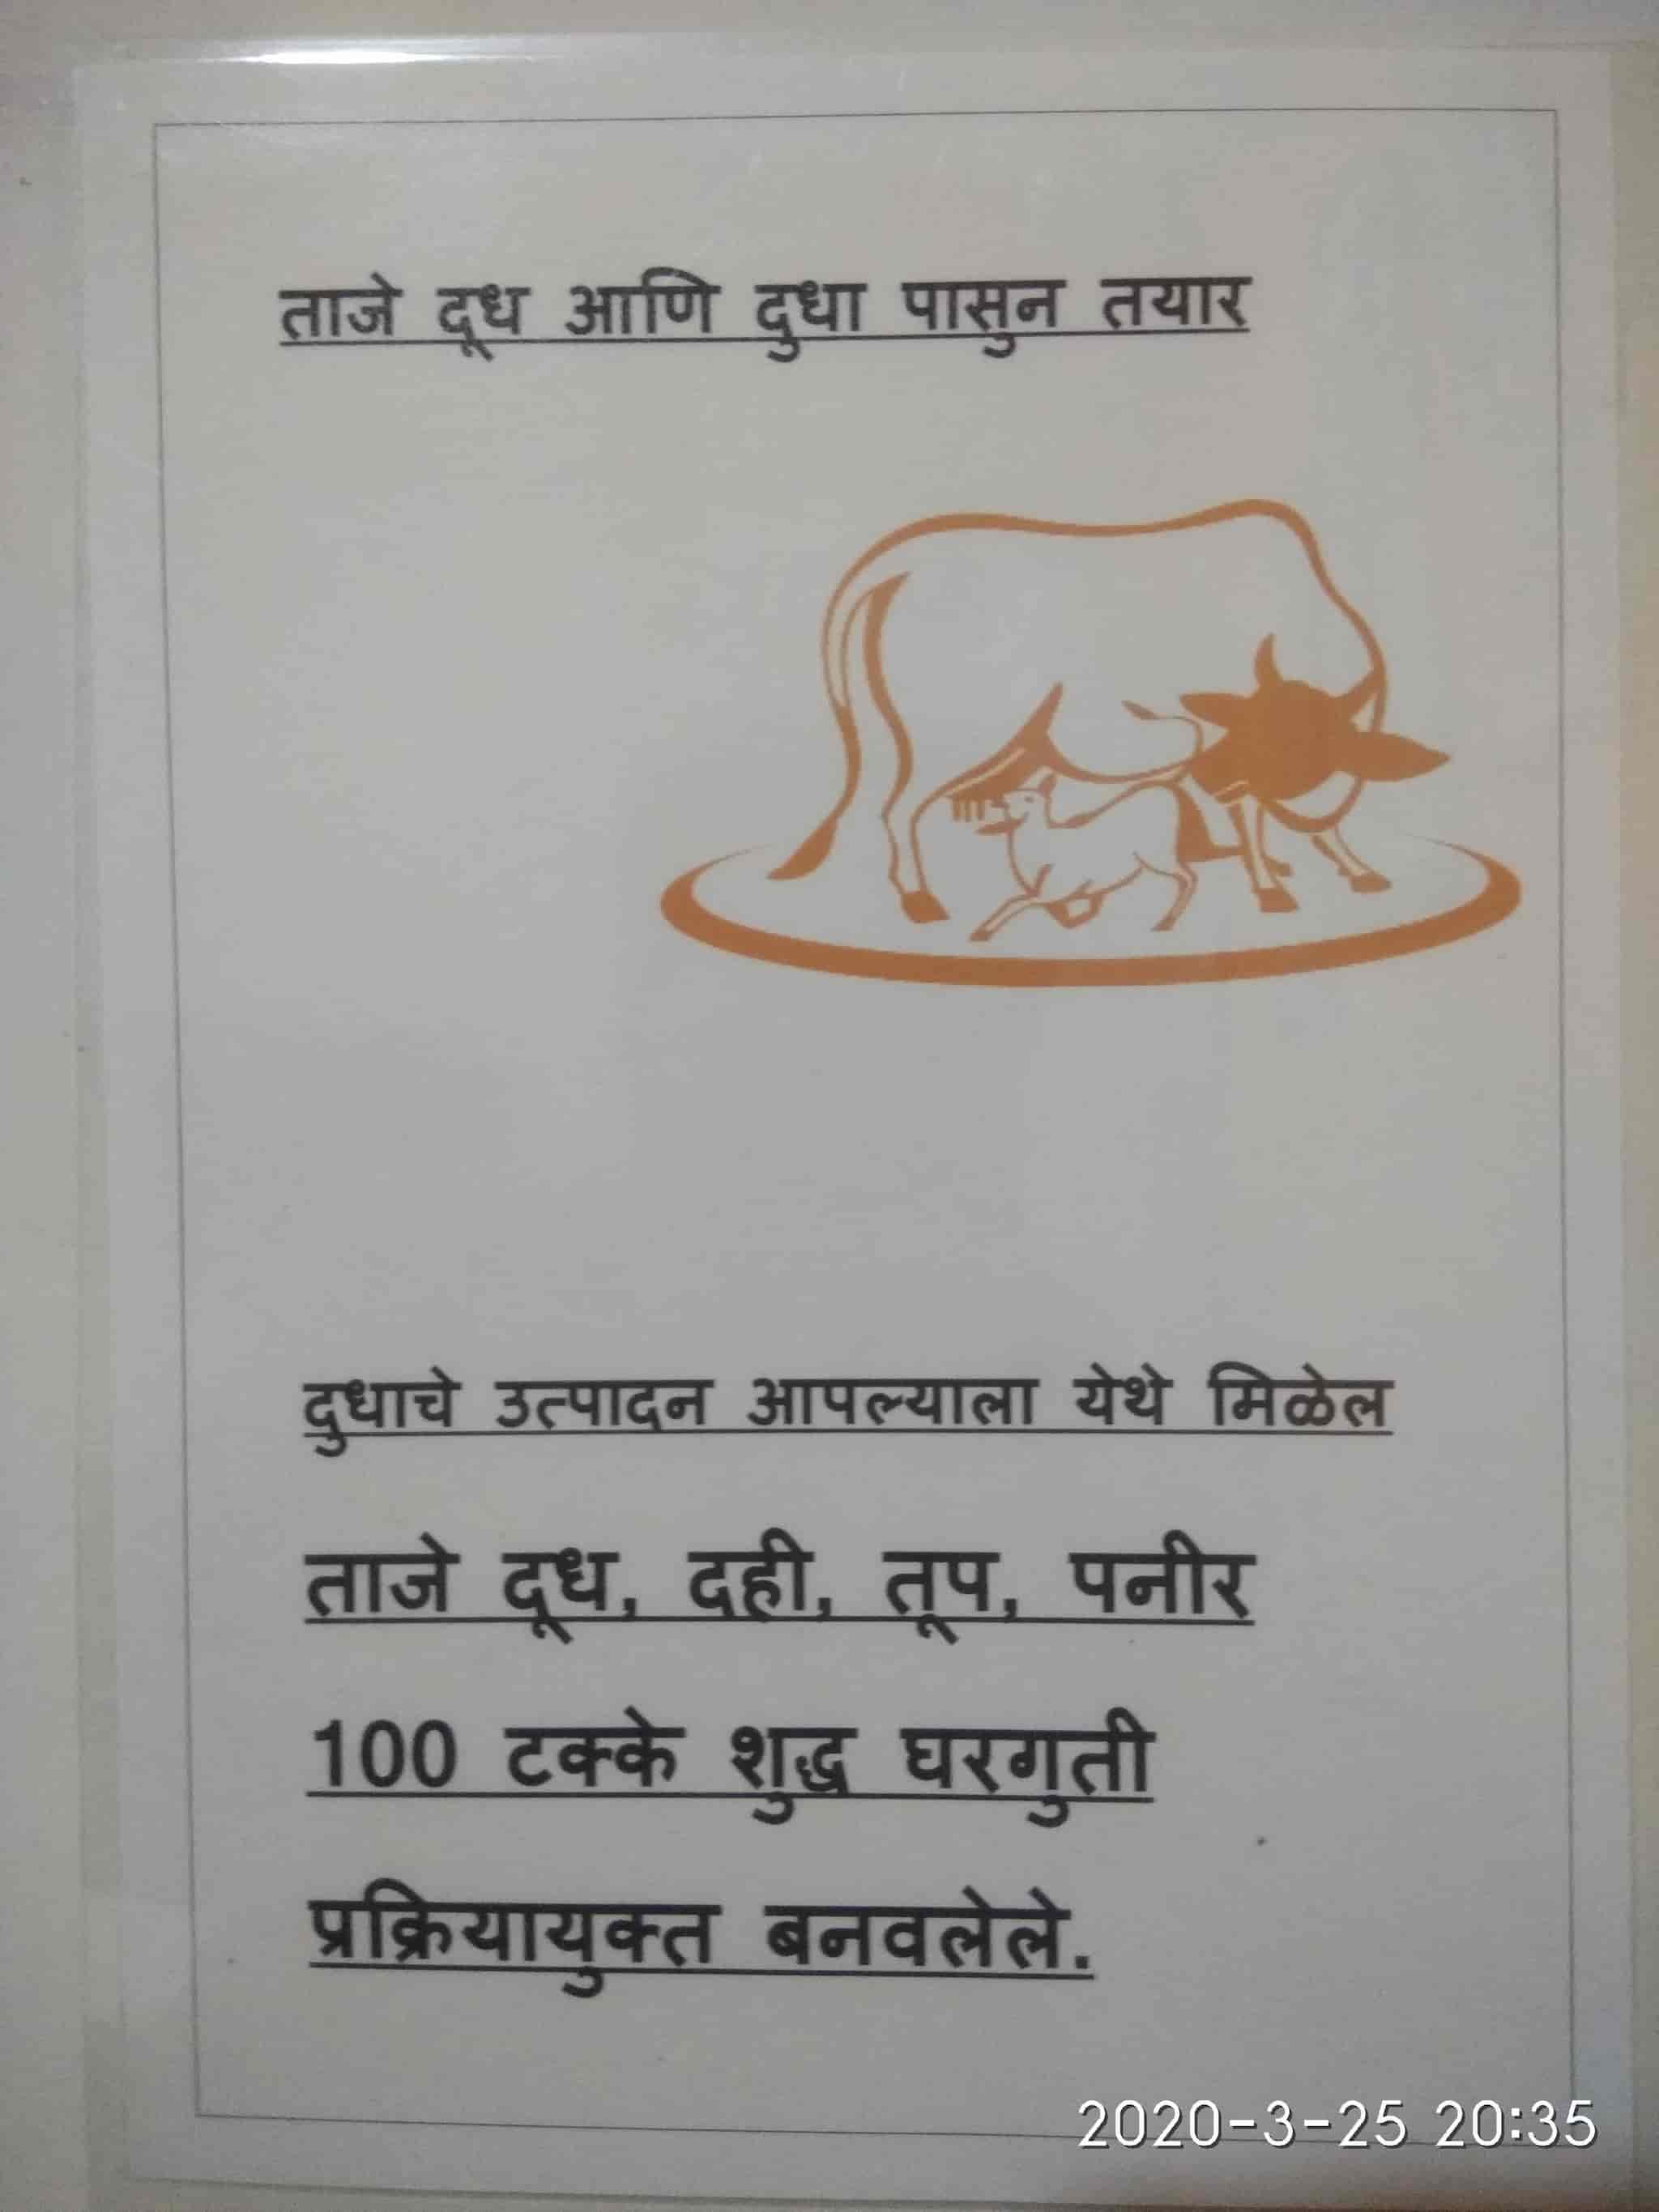 ताजे दूध आणि दुधा पासुन तयार
दुधाचे उत्पादन आपल्याला येथे मिळेल
ताजे दूध, दही, तूप, पनीर
100 टक्के शुद्ध घरगुती
प्रक्रियायुक्त बनवलेले.
2020-3-25 20:35